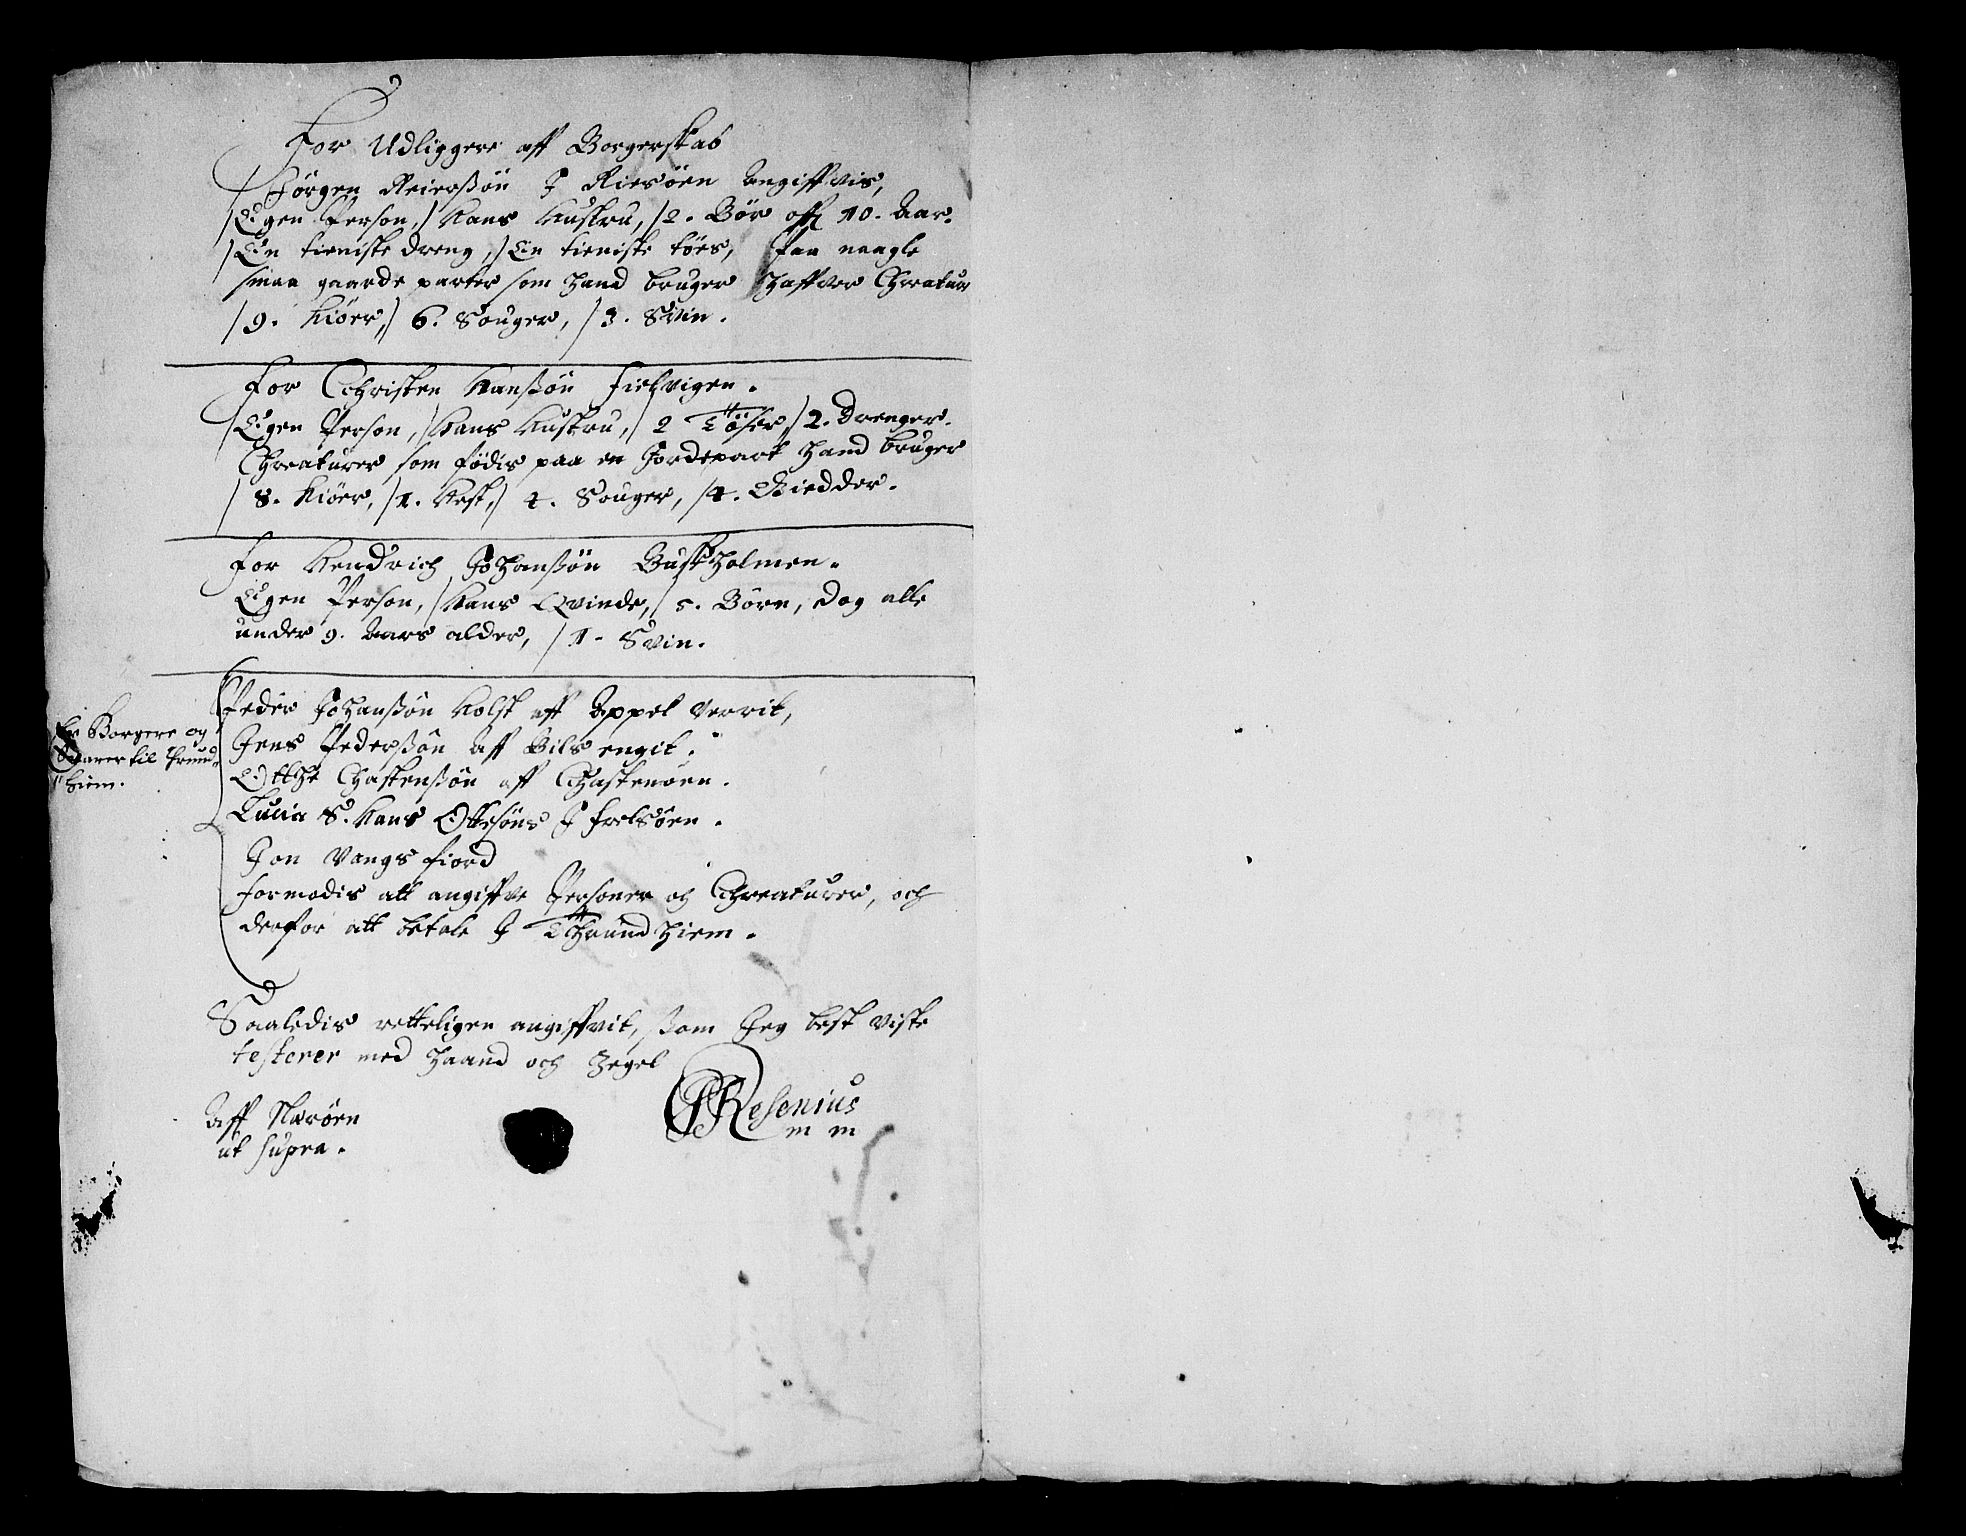 For Udliggere aff Borgerskab
Jörgen Reierßön J Riesöen Angiffvis,
Egen Person, / Hans Hustru, / 2. Bör off 10. Aar.
/ En tieniste dreng, / En tieniste töes, Paa naagle
smaa gaarde parter som hand bruger haffver Chreatur
/ 9. Kiöer, / 6. Souger, / 3. Svin.
For Christen Hanßön Fielvigen.
/ Egen Person, / Hans Hustru, / 2 Töser, / 2. Drenger.
Chreaturer som födis paa en Jordepart hand bruger
/ 8. Kiöer, / 1. Hest, / 4. Souger, / 4. Giedder.
For Hendrich Johanßön Buskholmen.
Egen Person, / Hans Qvinde, / 5. Börn, dog alle
under 9. Aars alder, / 1. Svin.
Peder Johanßön Holst aff Appel verrit,
Er Borgere og
Svarer til Trund-
hiem.
Jens Pederßön Aff Bils engit.
Otthe Chastenßön aff Chastenöen.
Lucia S. Hans Ottesöns J Frelsöen.
Jon Vangs fiord
formodis att angiffve Personer og Chreaturer, och
derfor att betale J Thrundhiem.
Saaledis retteligen angiffvit, ßom Jeg best viste
testerer med haand och Zegel
Aff Næröen
ut supra.
Resenius
m m